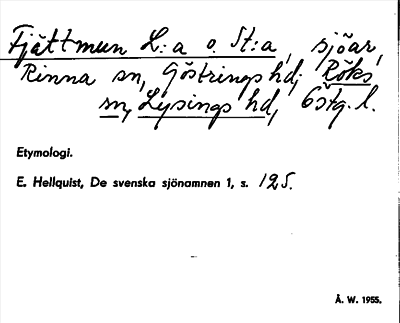 Fjättmun L:a o. St:a, sjöar,
Rinna sn, Göstrings hd; Röks
sn, Lysings hd, Östg. l.
Etymologi.
E. Hellquist, De svenska sjönamnen 1, s. 125.
Å. W. 1955.